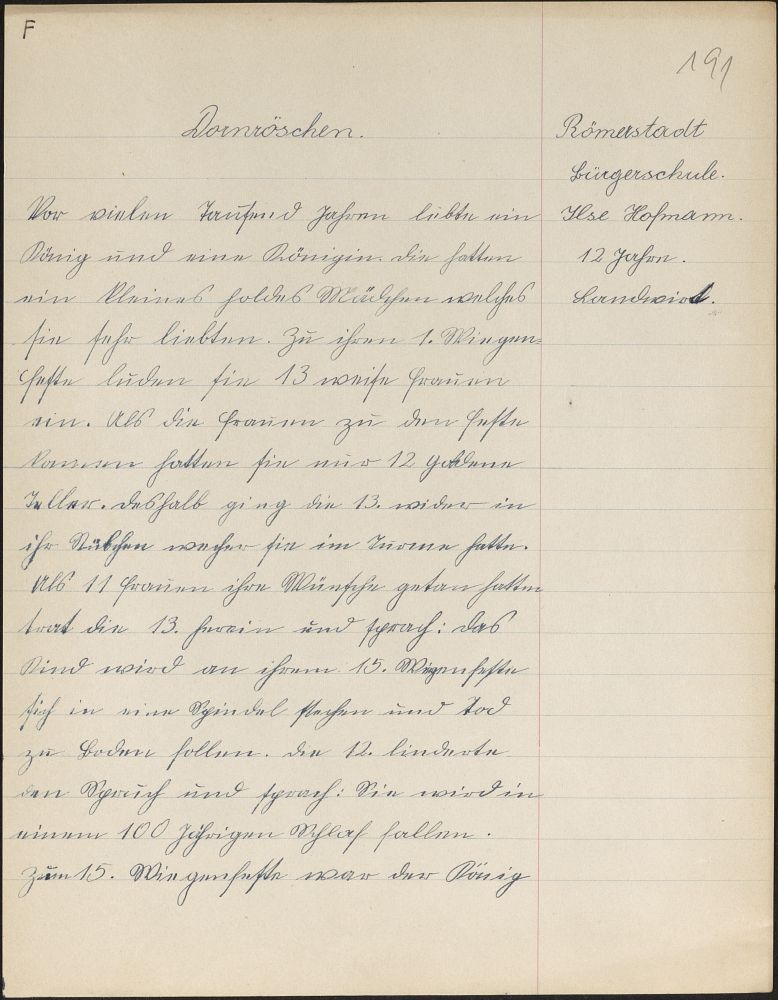 F
191
Dornröschen.
Römerstadt
Bürgerschule.
Ilse Hofmann.
12 Jahre.
Landwirt.
Vor vielen Taufend Jahren lebte ein
König und eine Königin. die hatten
ein kleines holdes Mädchen welches
sie sehr liebten. Zu ihren 1. Wiegen=
feste luden sie 13 weise Frauen
ein. Als die Frauen zu den Feste
kamen hatten sie nur 12 goldene
Teller. deshalb ging die 13. wider in
ihr Stübchen welcher sie im Turme hatte.
Als 11 Frauen ihre Wünsche getan hatten
trat die 13. herein und sprach: das
Kind wird an ihrem 15. Wigenfeste
sich in eine Spindel stechen und Tod
zu Boden fallen. die 12. linderte
den Spruch und sprach: Sie wird in
einem 100 jährigen Schlaf fallen.
Zum 15. Wiegenfeste war der König